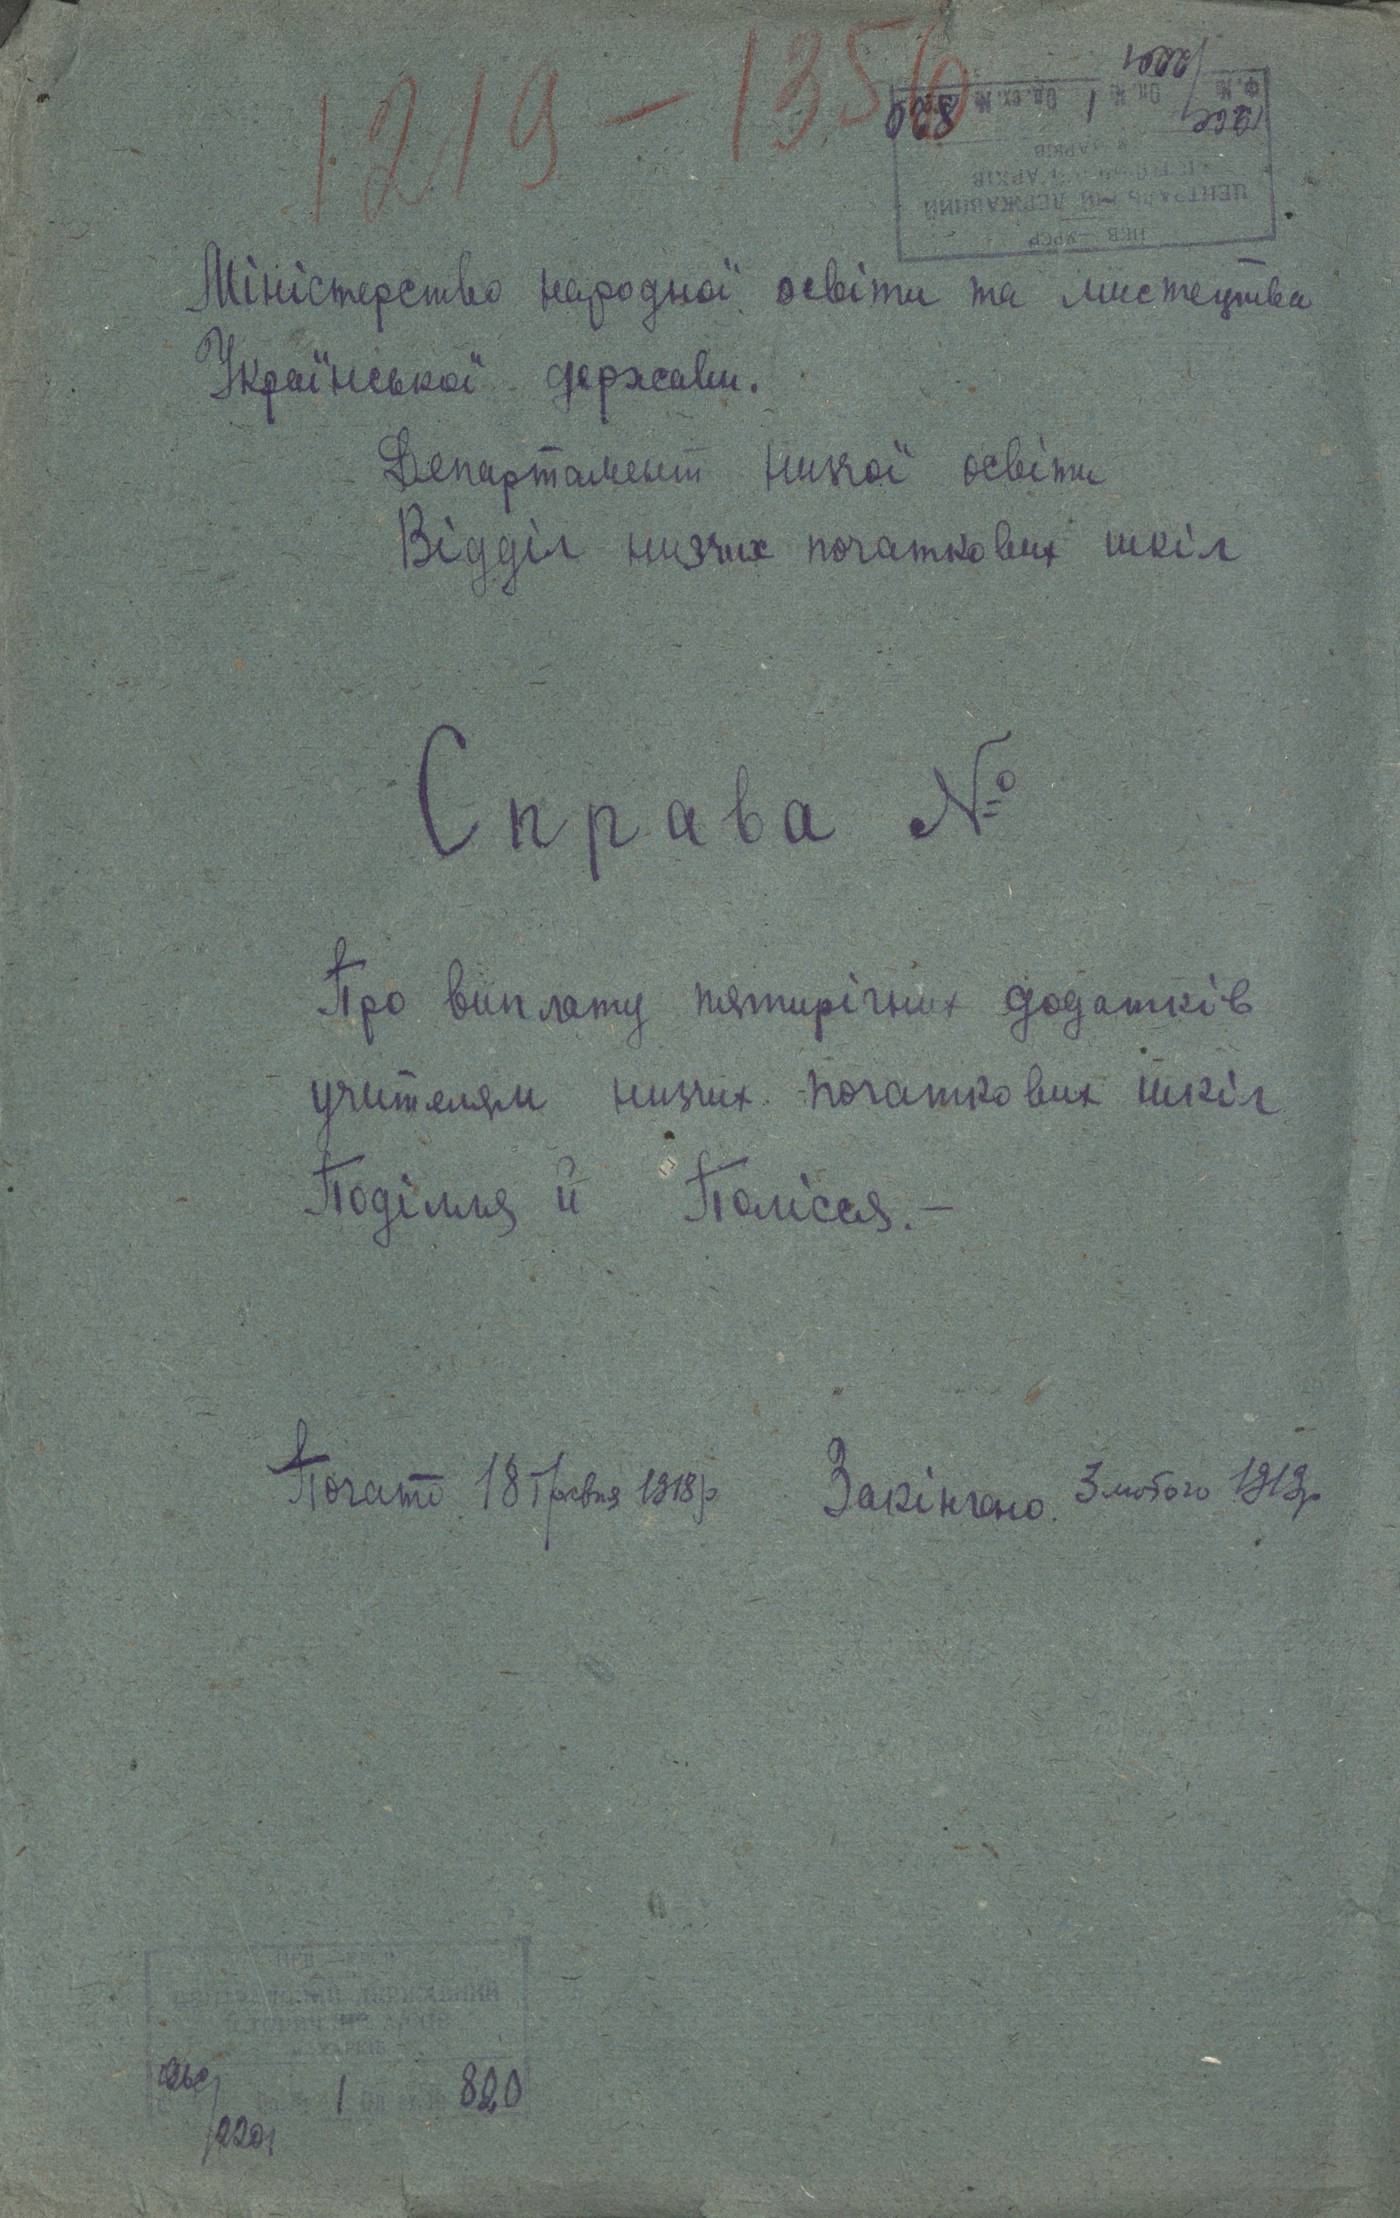 1219 – 1356
НКВ – УРСР
ЦЕНТРАЛЬНИЙ ДЕРЖАВНИЙ
АРХІВ
м. ХАРКІВ
Ф. № Оп. № 1 Од. зх. № 820
2201
Міністерство народної освіти та мистецтва
Української держави.
Департамент низчої освіти
Відділ низчих початкових шкіл
Справа №
Про виплату пятирічних додатків
учителям низчих початкових шкіл
Поділля й Полісся. –
Почато 18 Травня 1918 р Закінчено. 3 лютого 1919 р
ДЕРЖАВНИЙ
м. ХАРКІВ
1 Од. зх. № 820
2201